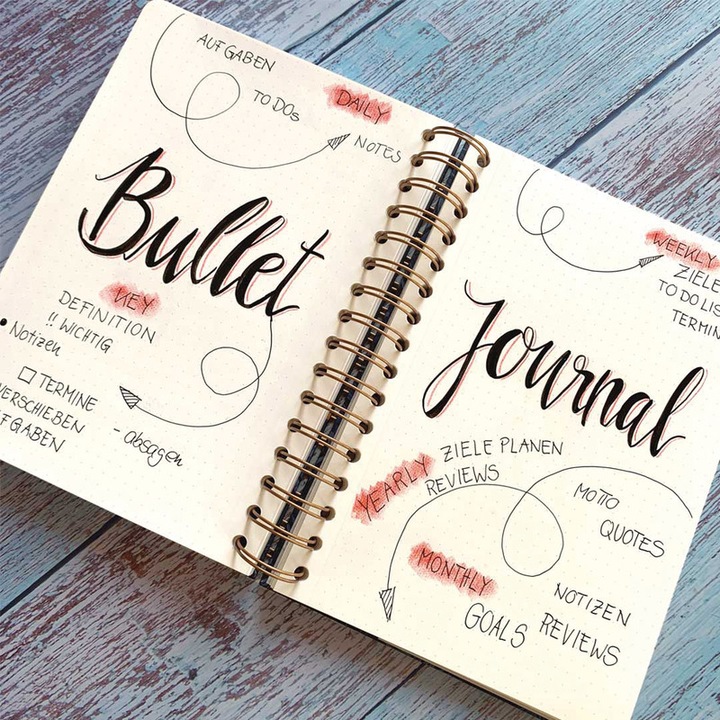 AUFGABEN
TO DOs
DAILY
NOTES
Bullet
KEY
DEFINITION
!! WICHTIG
• Notizen
☐ TERMINE
VERSCHIEBEN
FGABEN
- absagen
WEEKLY
ZIELE
TO DO LIS
TERMIN
Journal
YEARLY
ZIELE PLANEN
REVIEWS
MOTTO
QUOTES
MONTHLY
GOALS
NOTIZEN
REVIEWS